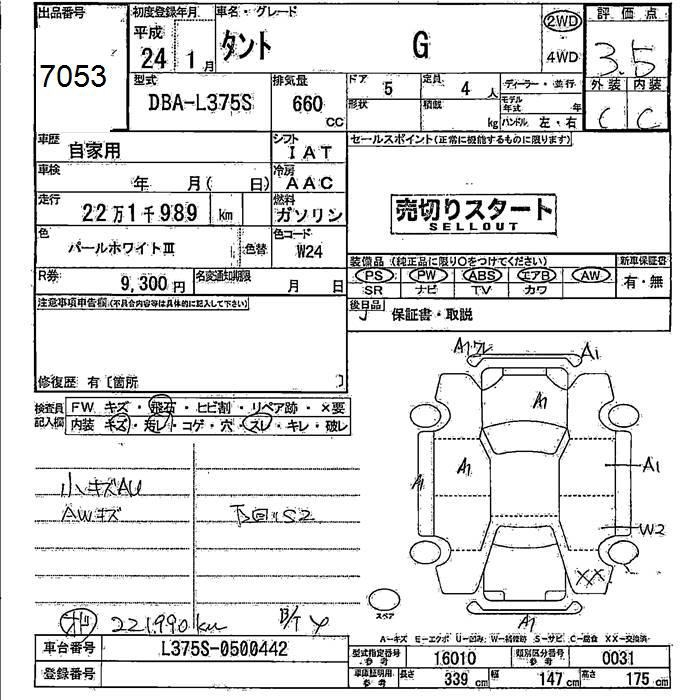 出品番号
7053
初度登録年月
平成
24 1 月
車名・グレード
タント G
2WD
4WD
評価点
3.5
外装 内装
C C
型式
DBA-L375S
排気量
660 CC
ドア 5
定員 4 人
形状
積載 kg
ディーラー・並行
モデル年式 年
ハンドル 左・右
車歴
自家用
シフト
IAT
車検
年 月( 日)
冷房
AAC
走行
22万1千989 km
燃料
ガソリン
色
パールホワイトⅢ
色替
色コード
W24
R券
9,300円
名変通知期限
月 日
セールスポイント(正常に機能するものに限ります)
売切りスタート
SELLOUT
装備品(純正品に限り○をつけてください)
PS PW ABS エアB AW
SR ナビ TV カワ
新車保証書
有・無
後日品
保証書・取説
注意事項申告欄(不具合内容等は具体的に記入して下さい)
修復歴 有〔箇所 〕
検査員記入欄
FW キズ・飛石・ヒビ割・リペア跡・×要
内装 キズ・汚レ・コゲ・穴・スレ・キレ・破レ
小キズAU
AWキズ
下回りS2
221,990km
A1
A1
A1
A1
A1
A1
W2
XX
A1
スペア
A-キズ E-エクボ U-凹み W-補修跡 S-サビ C-腐食 XX-交換済
車台番号
L375S-0500442
登録番号
型式指定番号 参考
16010
類別区分番号 参考
0031
車庫証明用 参考
長さ 339 cm
幅 147 cm
高さ 175 cm